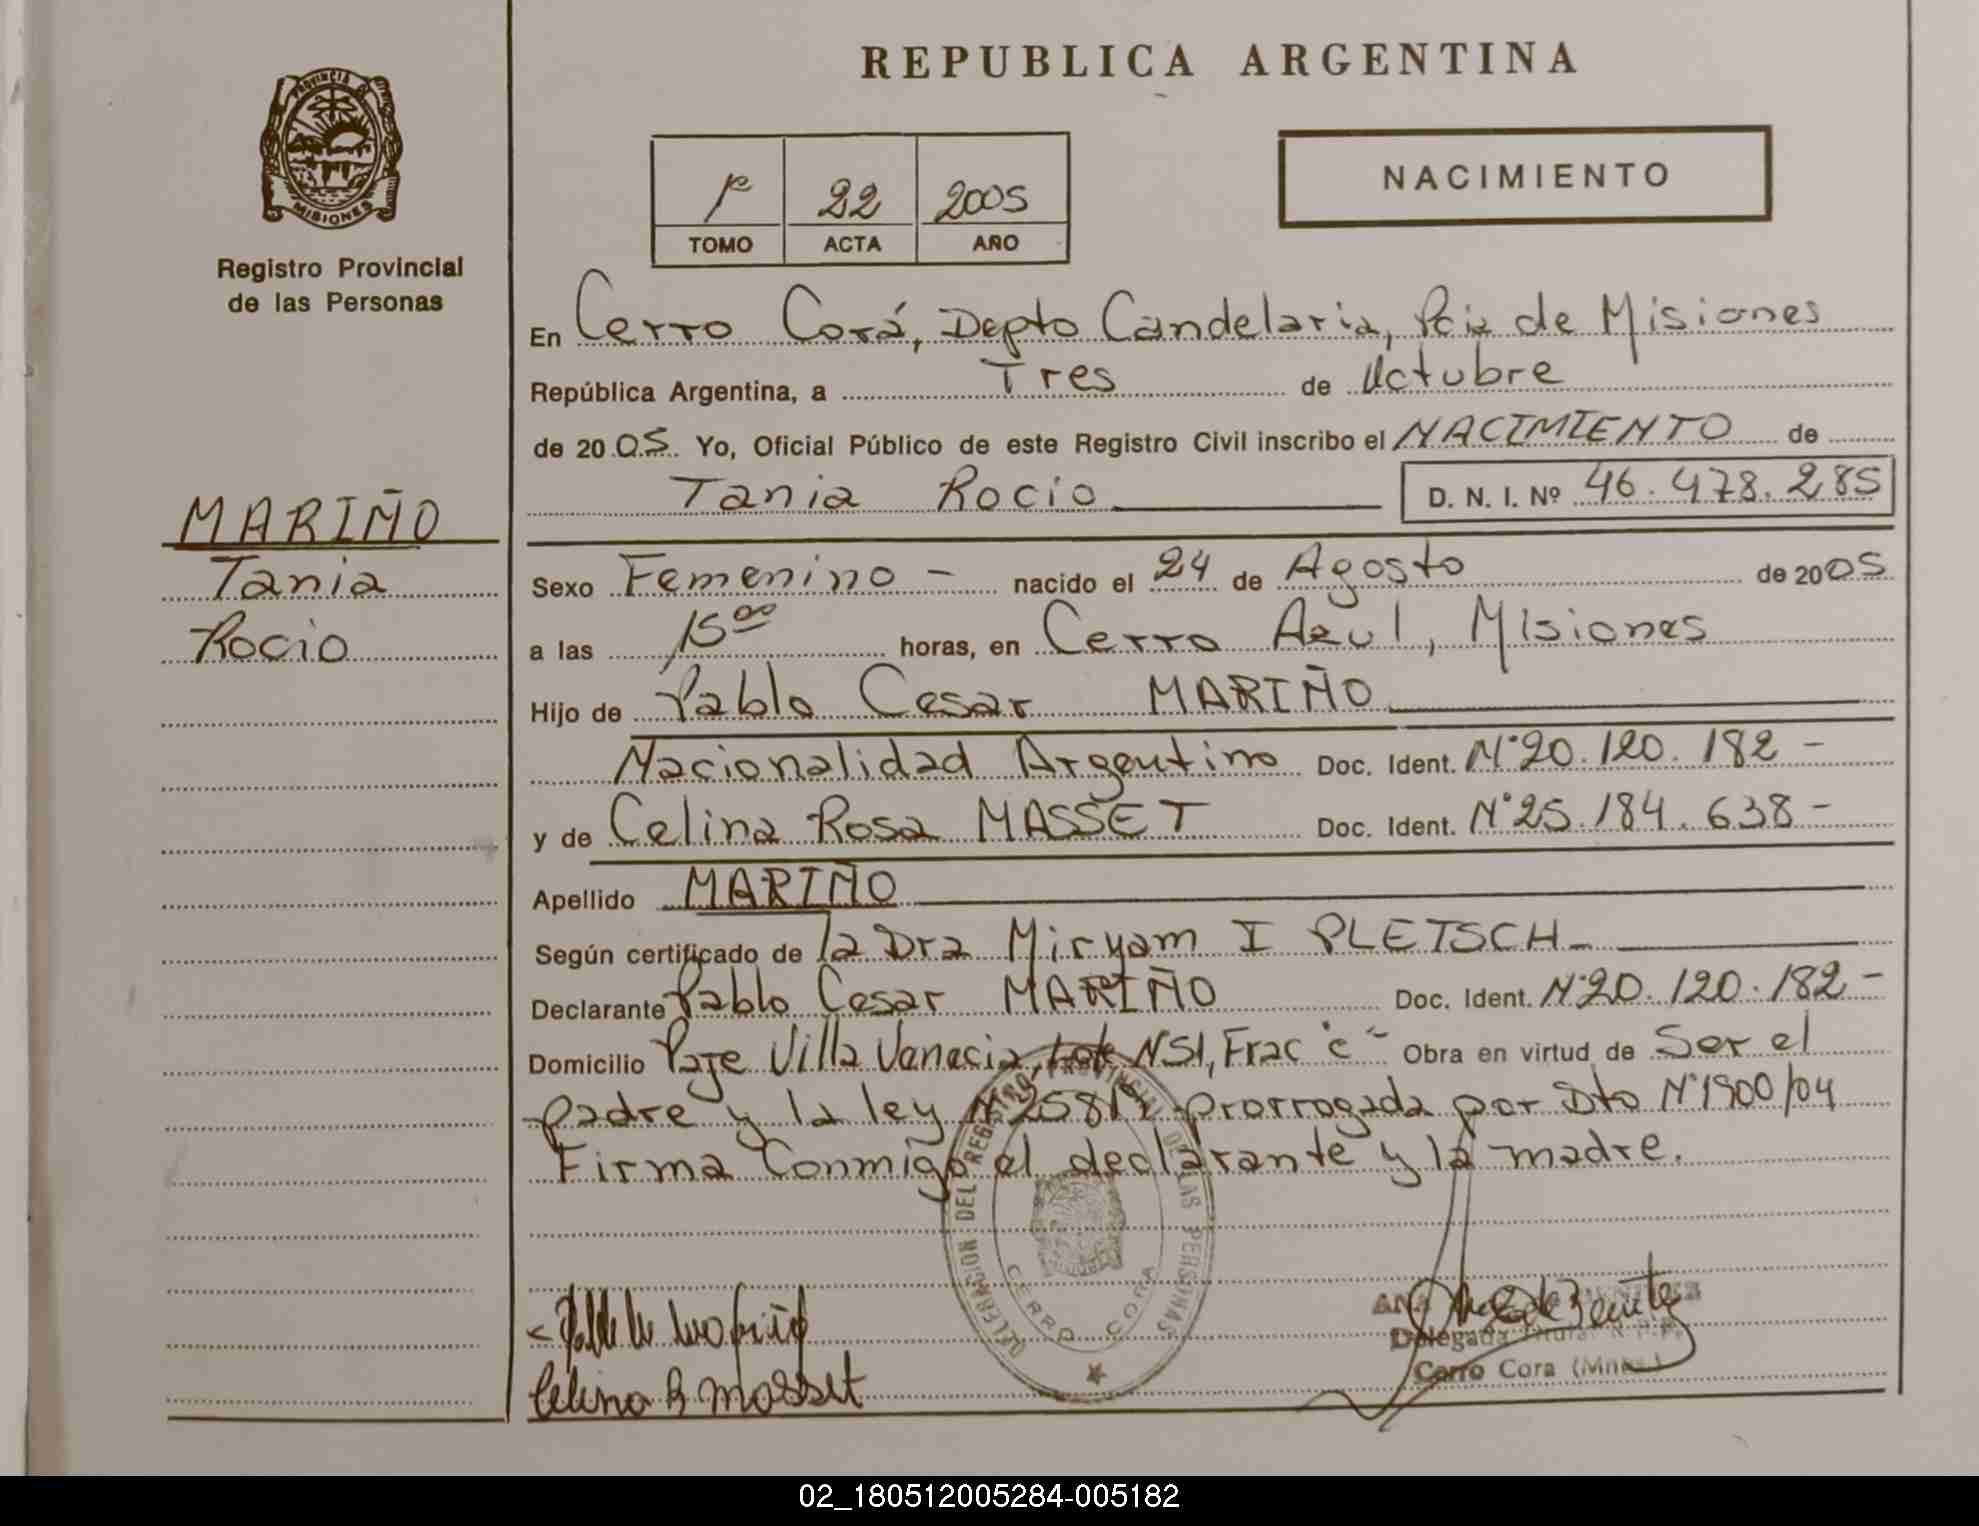 REPUBLICA ARGENTINA
PROVINCIA DE
MISIONES
Registro Provincial
de las Personas
1º 22 2005
TOMO ACTA AÑO
NACIMIENTO
En Cerro Corá, Depto Candelaria, Pcia de Misiones
República Argentina, a Tres de Octubre
de 2005 Yo, Oficial Público de este Registro Civil inscribo el NACIMIENTO de
Tania Rocio D. N. I. Nº 46.478.285
MARIÑO
Tania
Rocio
Sexo Femenino - nacido el 24 de Agosto de 2005
a las 15 00 horas, en Cerro Azul, Misiones
Hijo de Pablo Cesar MARIÑO
Nacionalidad Argentino Doc. Ident. Nº 20.120.182 -
y de Celina Rosa MASSET Doc. Ident. Nº 25.184.638 -
Apellido MARIÑO
Según certificado de la Dra Miryam I PLETSCH -
Declarante Pablo Cesar MARIÑO Doc. Ident. Nº 20.120.182 -
Domicilio Paje Villa Venecia, Lote N51, Frac "c" Obra en virtud de Ser el
padre y la ley Nº 25819 prorrogada por Dto Nº 1900/04
Firma Conmigo el declarante y la madre.
DELEGACION DEL REGISTRO PROVINCIAL DE LAS PERSONAS
CERRO CORA
Celina R Masset
ANA
Delegada Titular R.P.P.
Cerro Cora (Mnes.)
02_180512005284-005182